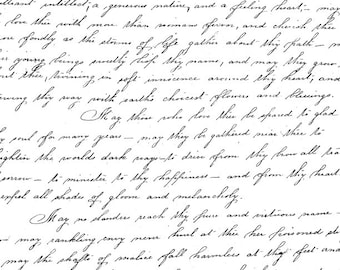 intellect, a generous nature, and a feeling heart, — may
love thee with more than womans fervor, and cherish thee
more fondly as the storms of life gather about thy path — may
young beings sweetly lisp thy name, and may they grow
thee, twining in soft innocence around thy heart, and
thy way with earths choicest flowers and blessings.
May those who love thee be spared to glad
thy soul for many years — may they be gathered near thee to
brighten the worlds dark ways — to drive from thy brow all
sorrow — to minister to thy happiness — and from thy heart
expel all shades of gloom and melancholy.
May no slander reach thy pure and virtuous name —
may rankling envy never hurl at thee her poisoned
may the shafts of malice fall harmless at thy feet and